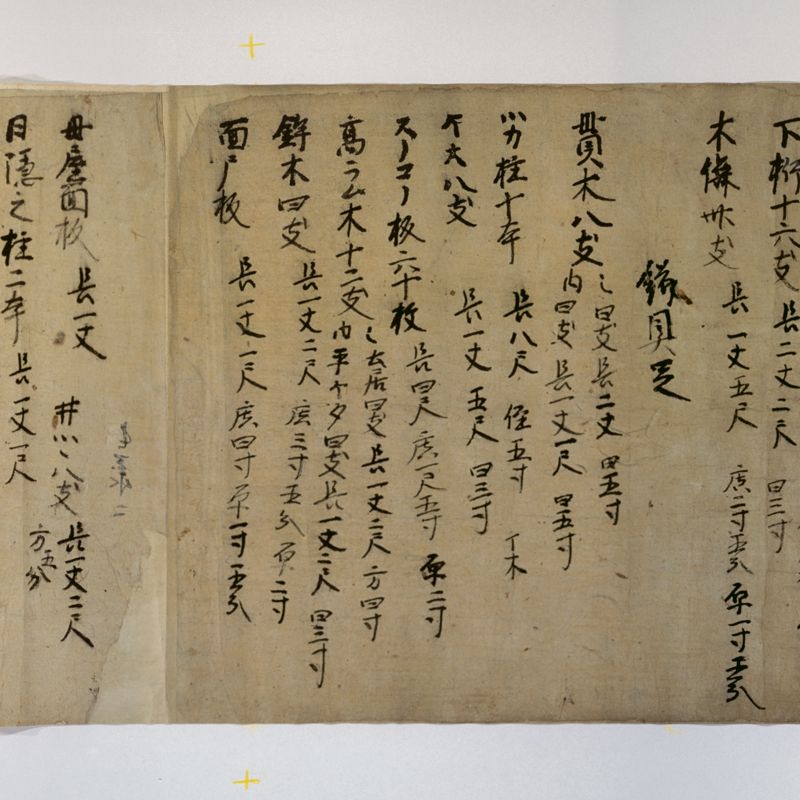 下桁十六支 長二丈二尺 口三寸
木偹卌支 長一丈五尺 広二寸五分 厚一寸五分
鎹具足
貫木八支 之四支長二丈 口五寸
内四支長一丈一尺 口五寸
小カ柱十本 長八尺 径五寸 丁木
ケ大八支 長一丈五尺 口三寸
スノコノ板六十枚 長四尺 広一尺五寸 厚二寸
高ラム木十二支 之土居四支 長一丈二尺 方四寸
内平ケタ四支長一丈二尺 口三寸
鉾木四支 長一丈二尺 広三寸五分 厚二寸
面戸板 長一丈一尺 広四寸厚一寸五分
母屋面板 長一丈 井 八支 長一丈二尺
方五分
日隠之柱二本 長一丈一尺